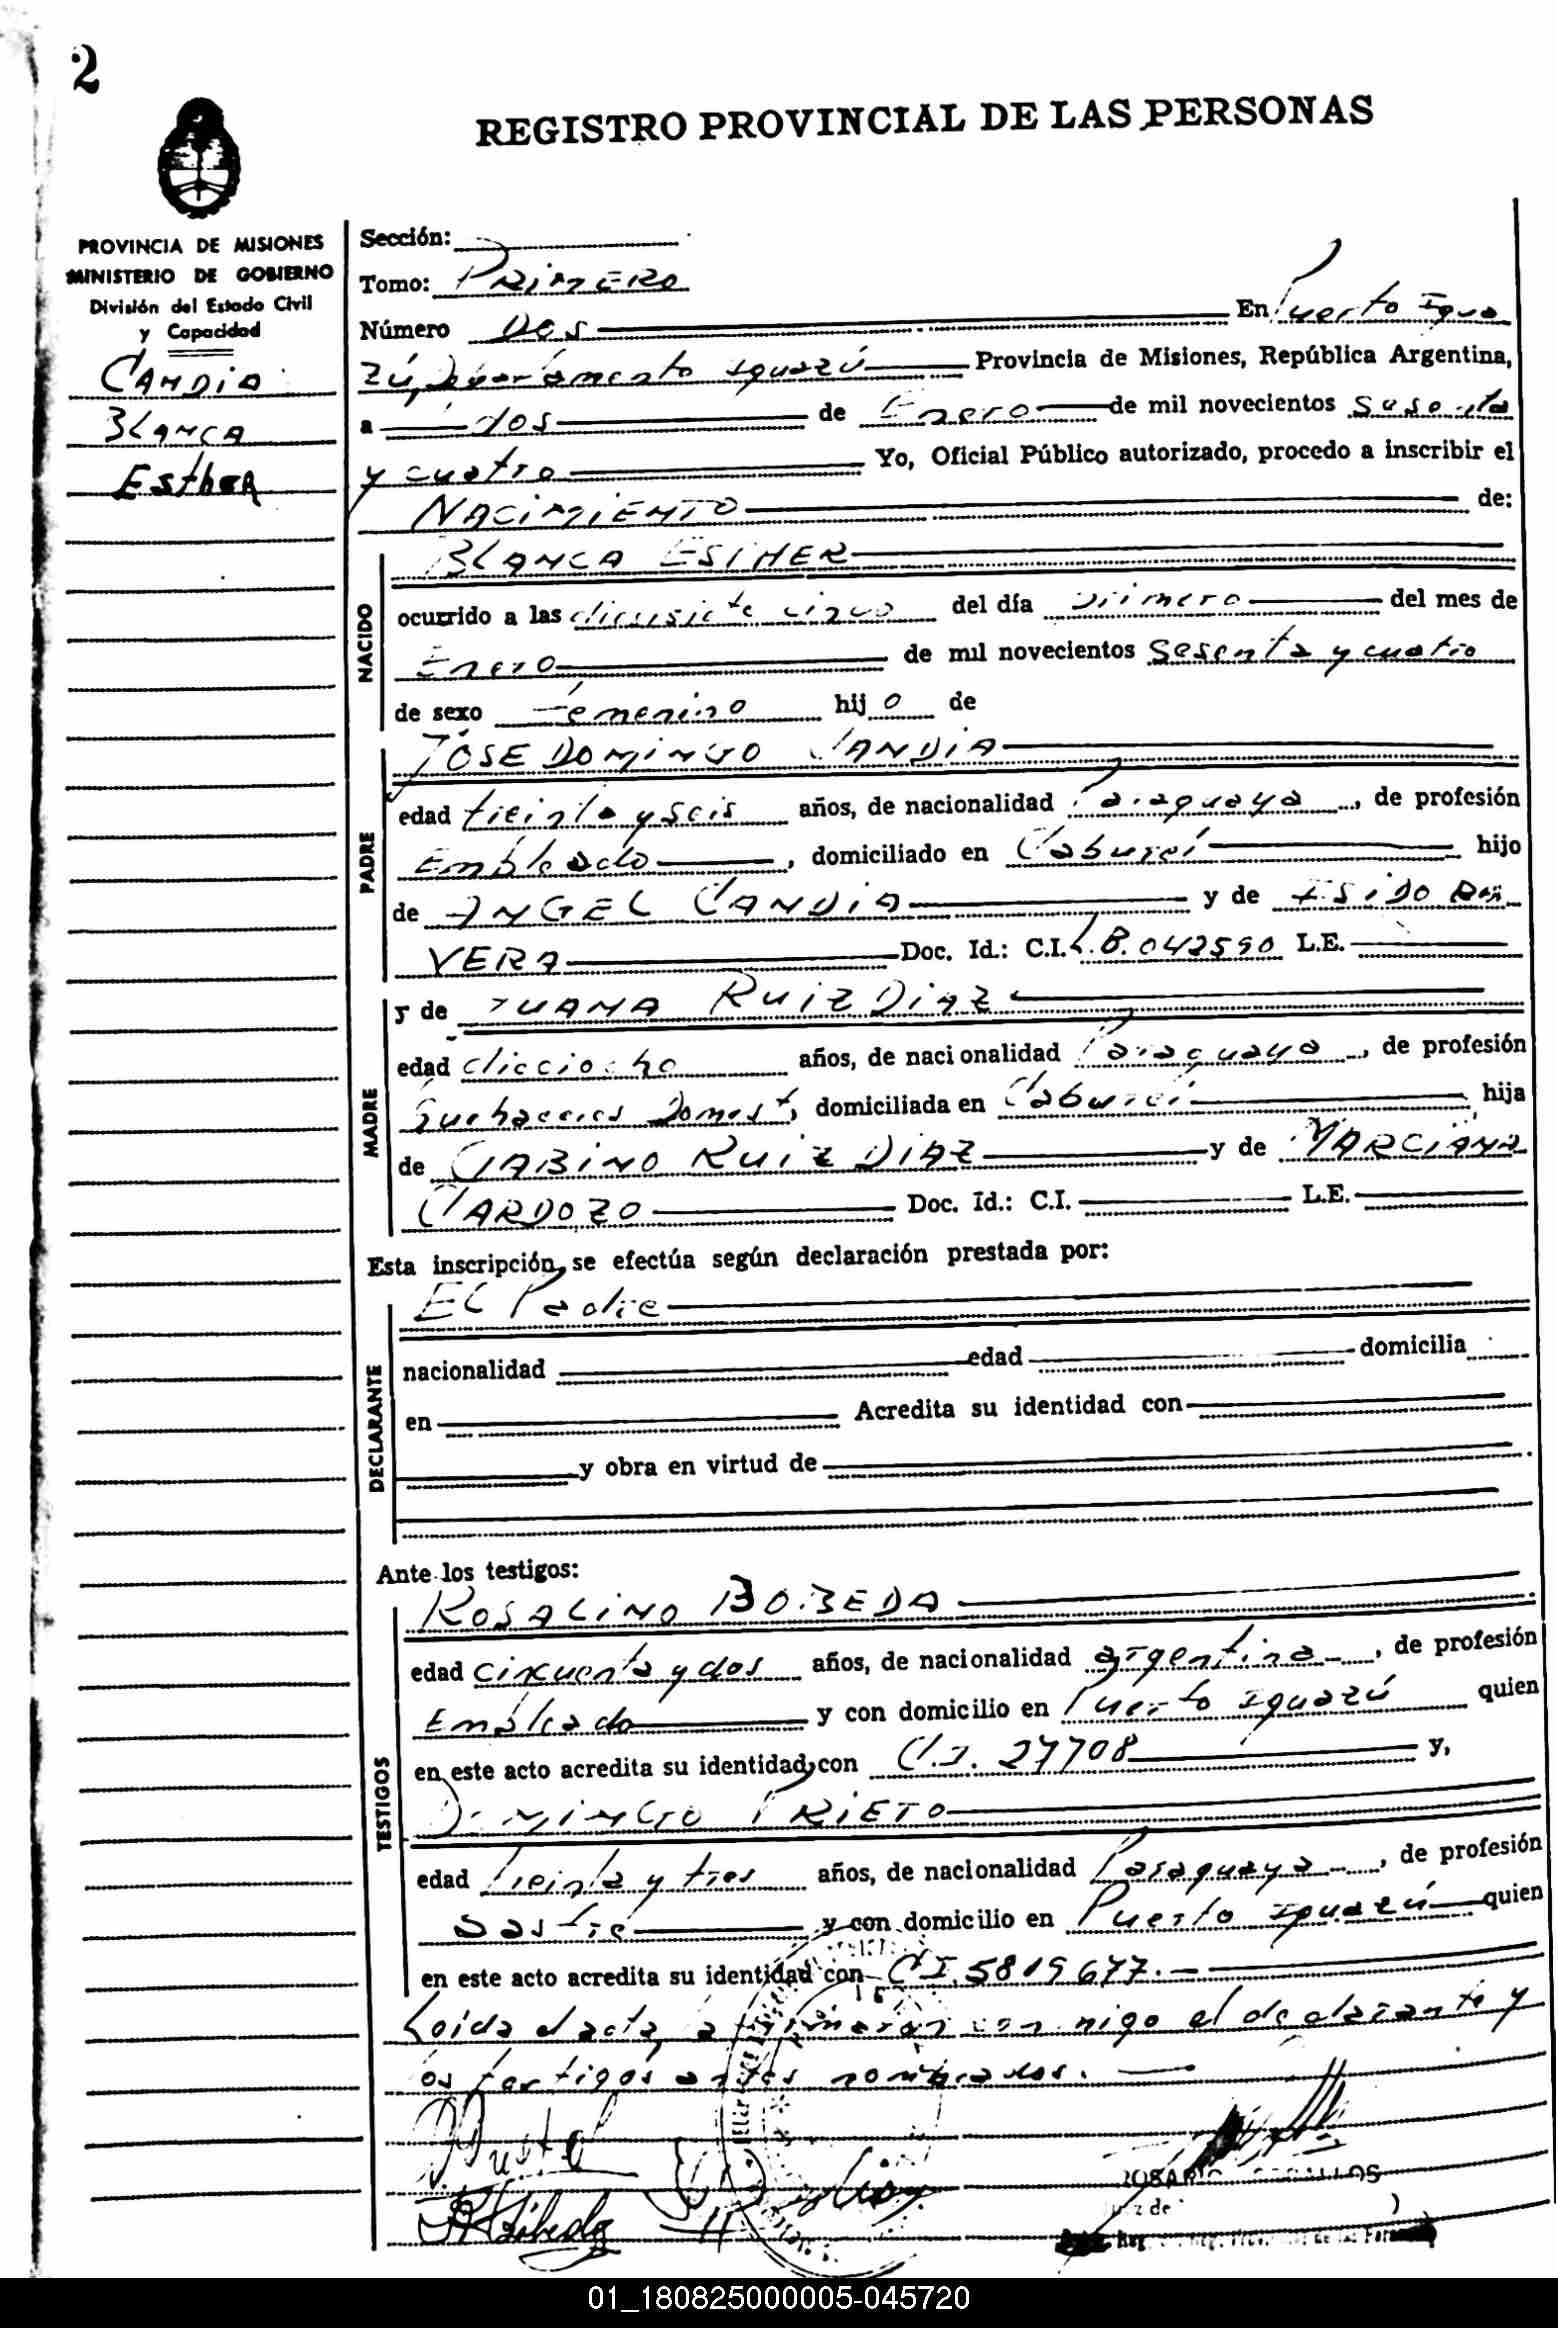 2
REGISTRO PROVINCIAL DE LAS PERSONAS
PROVINCIA DE MISIONES
MINISTERIO DE GOBIERNO
División del Estado Civil
y Capacidad
CANDIA
BLANCA
EstheR
Sección:
Tomo: PRIMERO
Número Dos En Puerto Igua
zú, Departamento Iguazú Provincia de Misiones, República Argentina,
a dos de Enero de mil novecientos sesenta
y cuatro Yo, Oficial Público autorizado, procedo a inscribir el
NACIMIENTO de:
NACIDO
BLANCA ESTHER
ocurrido a las diecisiete cinco del día primero del mes de
Enero de mil novecientos sesenta y cuatro
de sexo Femenino hij o de
PADRE
JOSE DOMINGO CANDIA
edad treinta y seis años, de nacionalidad Paraguaya, de profesión
Empleado, domiciliado en Caburei hijo
de ANGEL CANDIA y de ISIDORA
VERA Doc. Id.: C.I. 042590 L.E.
MADRE
y de JUANA RUIZ DIAZ
edad dieciocho años, de nacionalidad Paraguaya, de profesión
Quehaceres Domest, domiciliada en Caburei hija
de GABINO RUIZ DIAZ y de MARCIANA
CARDOZO Doc. Id.: C.I. L.E.
Esta inscripción se efectúa según declaración prestada por:
DECLARANTE
El Padre
nacionalidad edad domicilia
en Acredita su identidad con
y obra en virtud de
Ante los testigos:
TESTIGOS
ROSALINO BOBEDA
edad cincuenta y dos años, de nacionalidad argentina, de profesión
Empleado y con domicilio en Puerto Iguazú quien
en este acto acredita su identidad con C.I. 27708 y,
DOMINGO PRIETO
edad treinta y tres años, de nacionalidad Paraguaya, de profesión
Sastre y con domicilio en Puerto Iguazú quien
en este acto acredita su identidad con CI. 5819677.-
Leida el acta, a firmaron con migo el declarante y
los testigos antes nombrados.
01_180825000005-045720